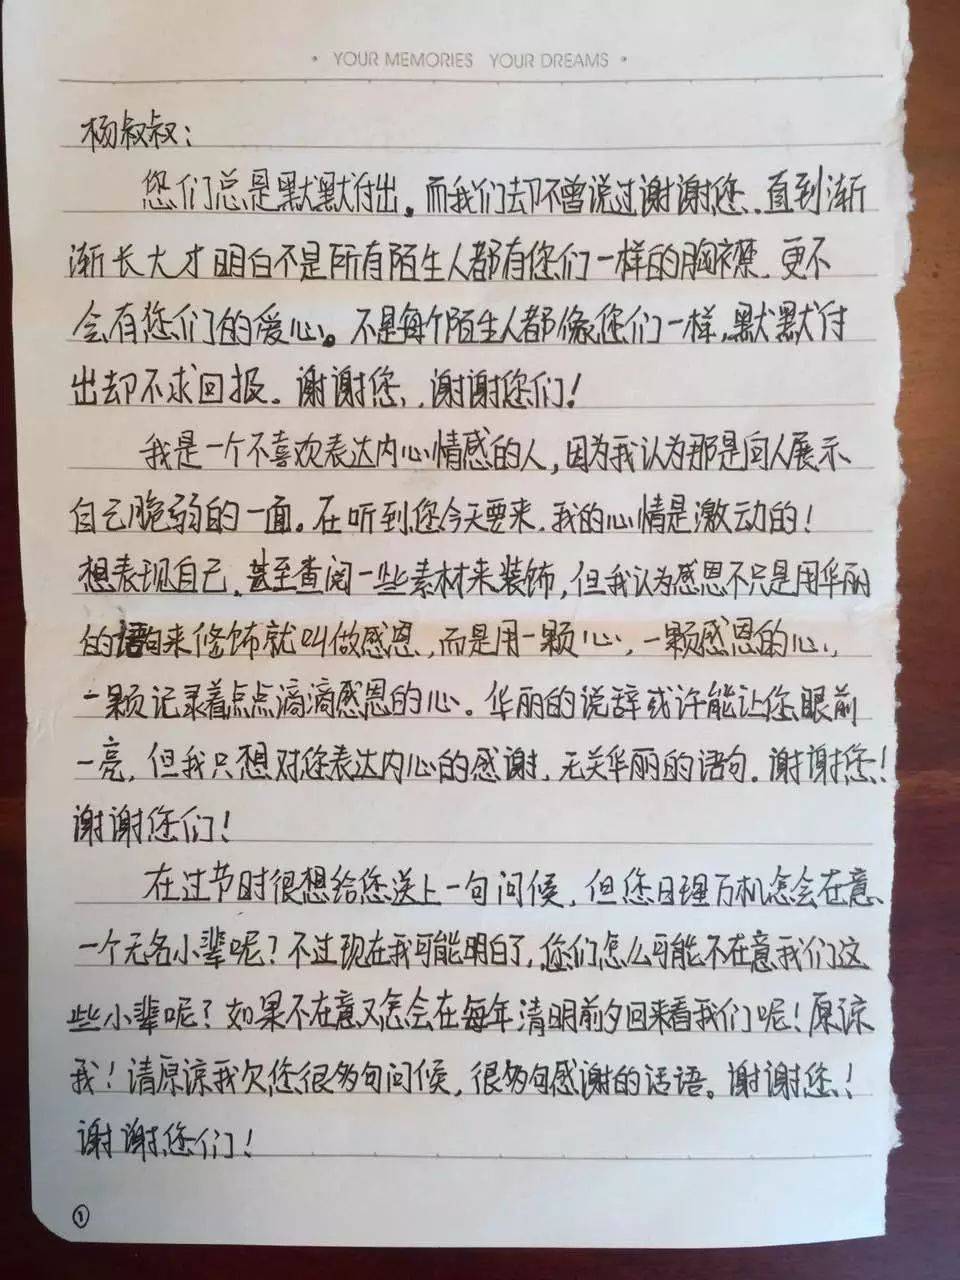 • YOUR MEMORIES YOUR DREAMS •
杨叔叔：
您们总是默默付出。而我们却不曾说过谢谢您、直到渐
渐长大才明白不是所有陌生人都有您们一样的胸襟、更不
会有您们的爱心。不是每个陌生人都像您们一样，默默付
出却不求回报。谢谢您、谢谢您们！
我是一个不喜欢表达内心情感的人，因为我认为那是向人展示
自己脆弱的一面。在听到您今天要来、我的心情是激动的！
想表现自己、甚至查阅一些素材来装饰，但我认为感恩不只是用华丽
的语句来修饰就叫做感恩，而是用一颗心、一颗感恩的心、
一颗记录着点点滴滴感恩的心。华丽的说辞或许能让您眼前
一亮，但我只想对您表达内心的感谢、无关华丽的语句。谢谢您！
谢谢您们！
在过节时很想给您送上一句问候，但您日理万机怎会在意
一个无名小辈呢？不过现在我可能明白了，您们怎么可能不在意我们这
些小辈呢？如果不在意又怎会在每年清明前夕回来看我们呢！原谅
我！请原谅我欠您很多句问候，很多句感谢的话语。谢谢您！
谢谢您们！
①